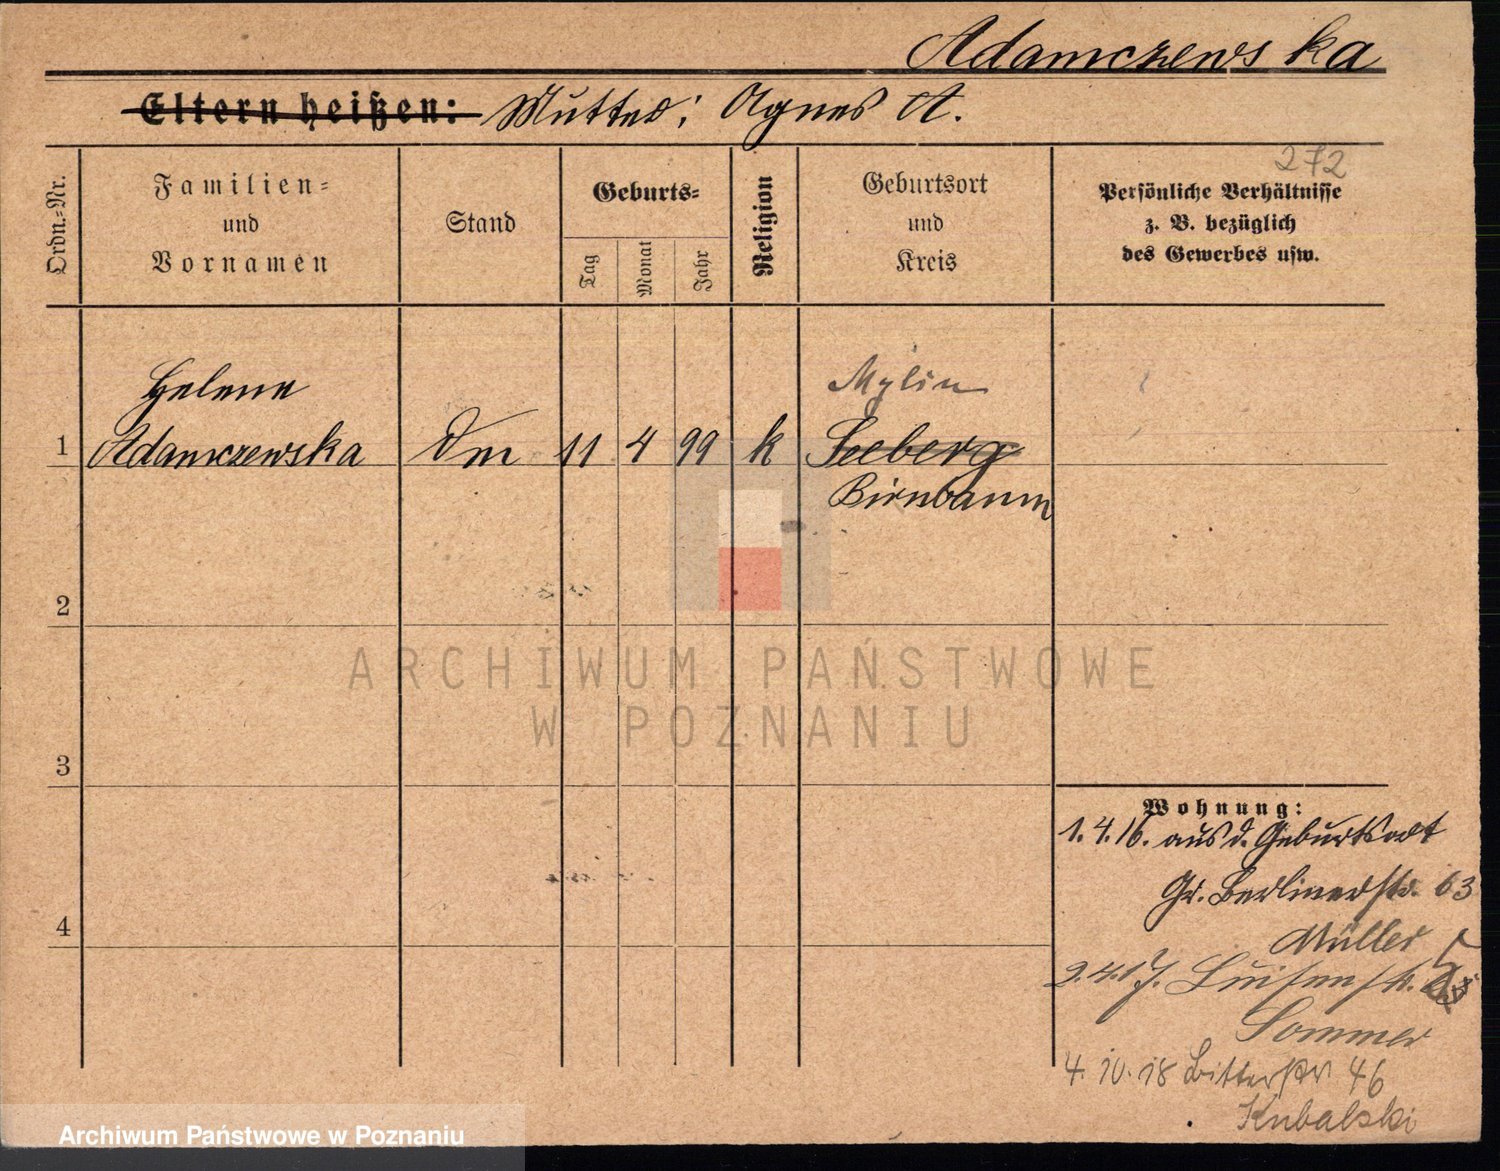 Adamczewska
Eltern heißen: Mutter: Agnes A.
272
Ordn.-Nr.
Familien-
und
Vornamen
Stand
Geburts-
Tag
Monat
Jahr
Religion
Geburtsort
und
Kreis
Persönliche Verhältnisse
z. B. bezüglich
des Gewerbes usw.
Helene
Mylin
1 Adamczewska Dm 11 4 99 k Seeberg
Birnbaum
2
ARCHIWUM PAŃSTWOWE
W POZNANIU
3
Wohnung:
1.4.16. aus d. Geburtsort
Gr. Berlinerstr. 63
4
Müller
2.4.17. Luisenstr.
Sommer
4.10.18 Ritterstr 46
Kubalski
Archiwum Państwowe w Poznaniu